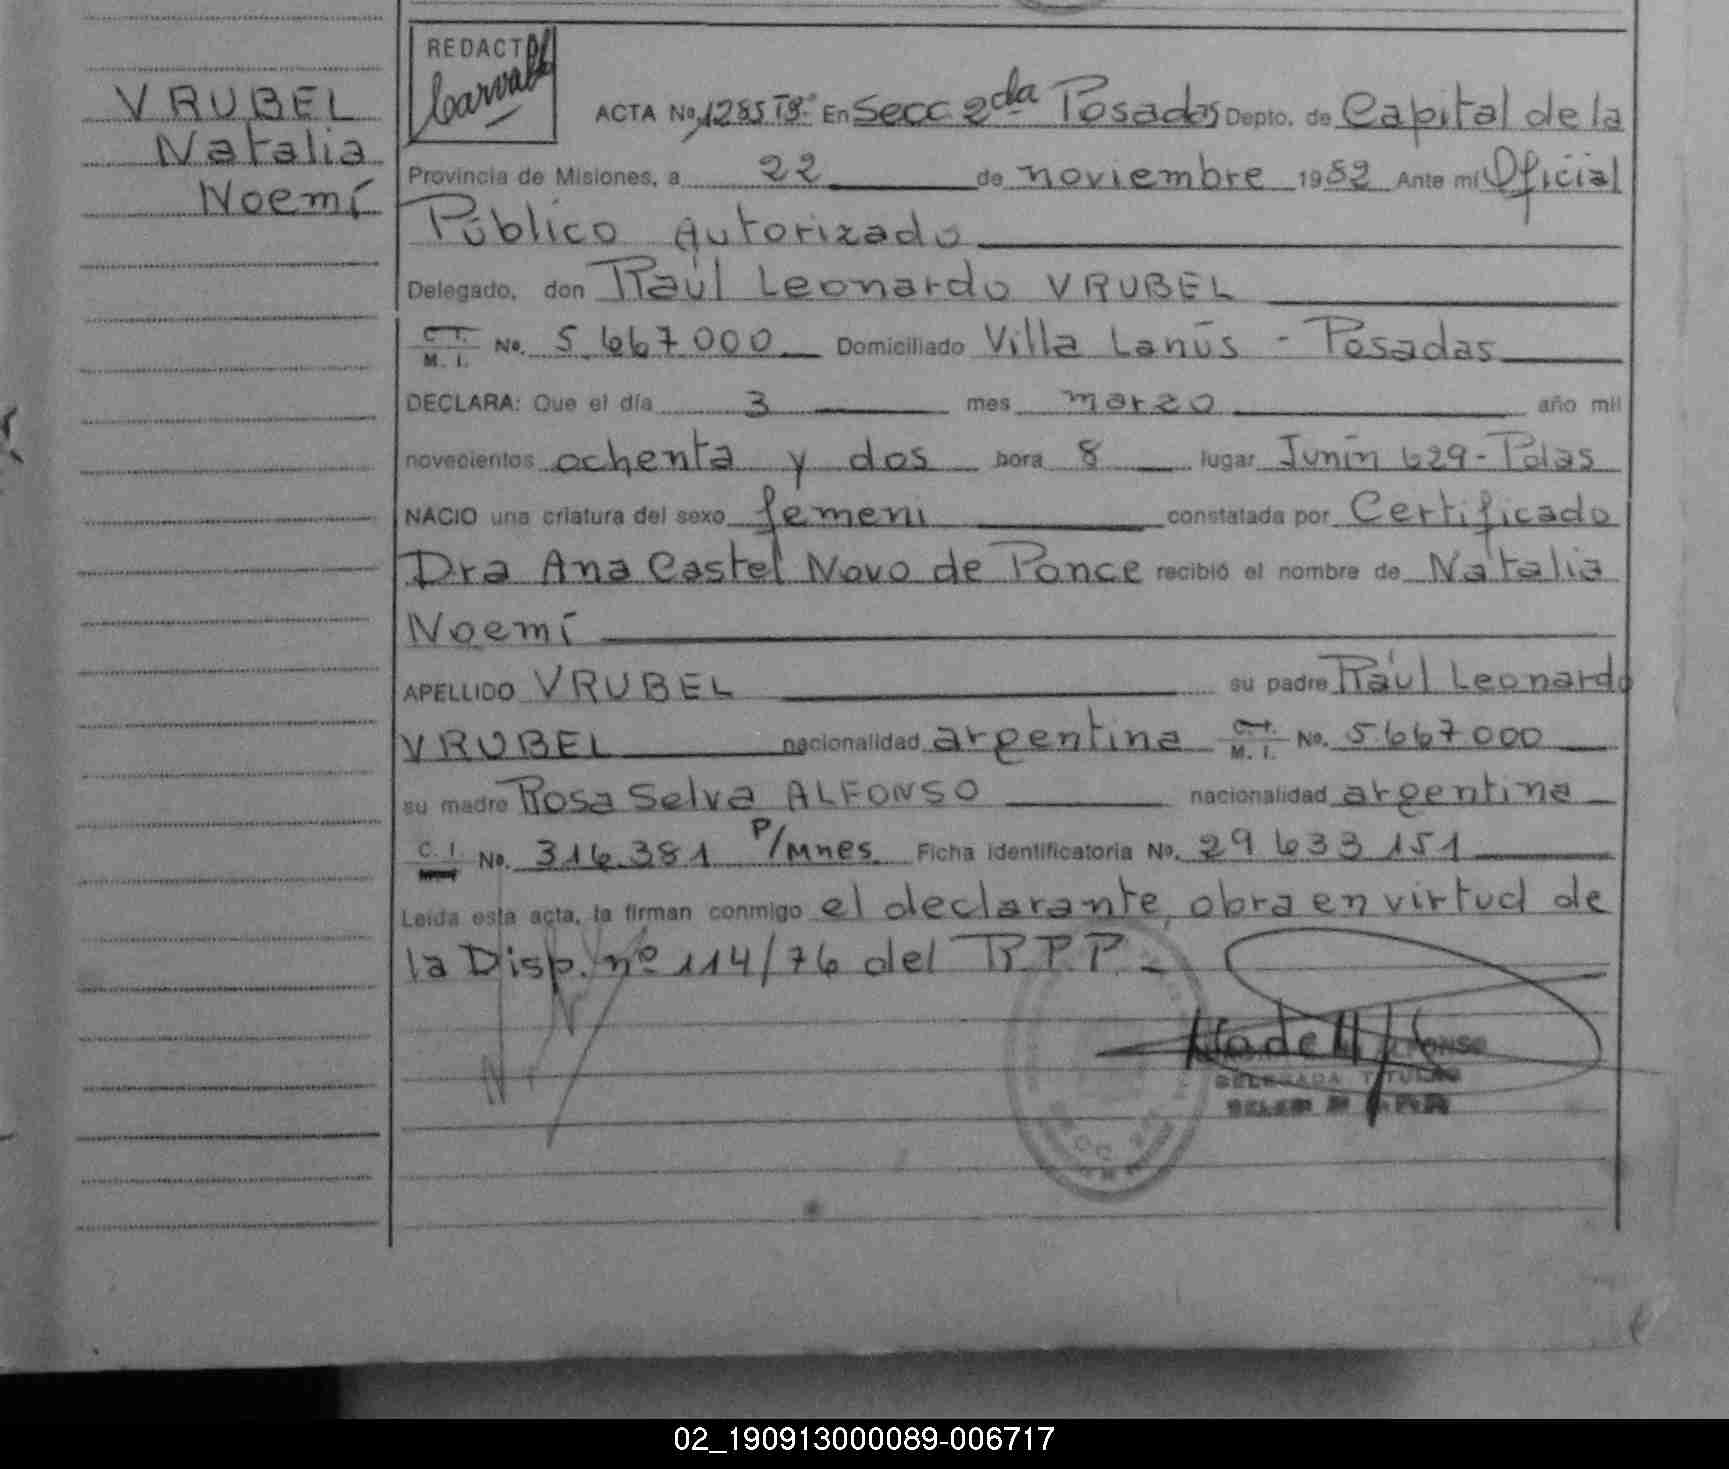 VRUBEL
Natalia
Noemí
REDACTO
Carvall
ACTA No. 1285 Tº En Secc 2da Posadas Depto. de Capital de la
Provincia de Misiones, a 22 de noviembre 1982 Ante mi Oficial
Público Autorizado
Delegado, don Raúl Leonardo VRUBEL
C. I. M. I. No. 5.667.000 Domiciliado Villa Lanús - Posadas
DECLARA: Que el día 3 mes marzo año mil
novecientos ochenta y dos hora 8 lugar Junín 629 - Pdas
NACIO una criatura del sexo femeni constatada por Certificado
Dra Ana Castel Novo de Ponce recibió el nombre de Natalia
Noemí
APELLIDO VRUBEL su padre Raúl Leonardo
VRUBEL nacionalidad argentina C. I. M. I. No. 5.667.000
su madre Rosa Selva ALFONSO nacionalidad argentina
C. I. No. 316.381 P/Mnes. Ficha identificatoria No. 29.633.151
Leída esta acta, la firman conmigo el declarante, obra en virtud de
la Disp. nº 114/76 del R.P.P. -
DELEGADA TITULAR
02_190913000089-006717